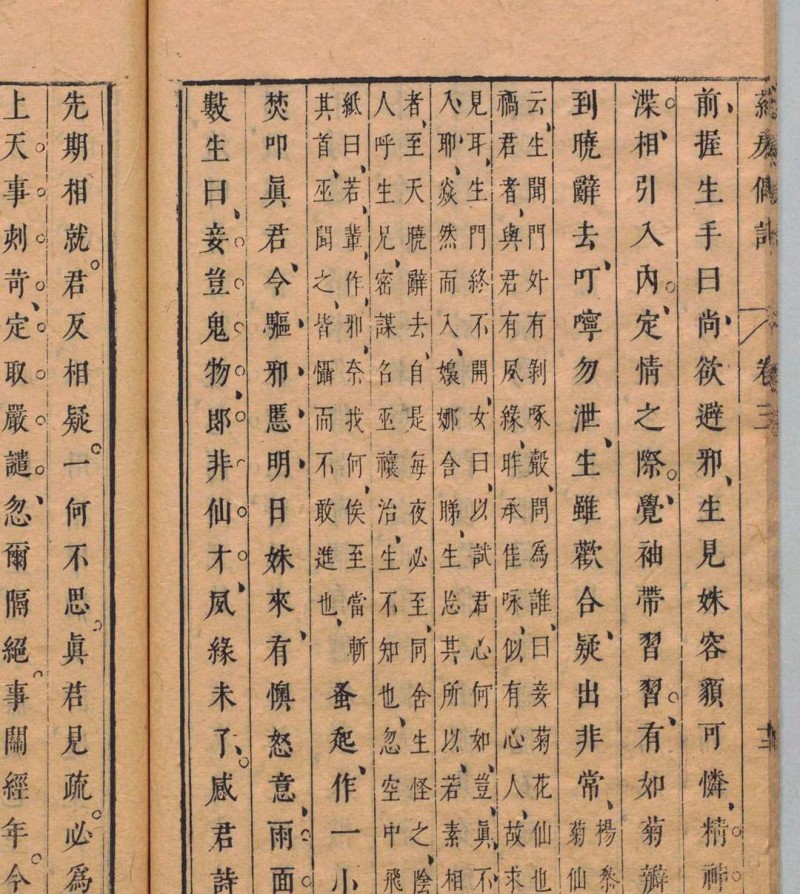 卷三
前、握生手曰、尚欲避邪、生見姝容顏可憐、精神
渫。相、引入內。定、情之際。覺、袖帶習習。有、如菊瓣
到曉辭去叮、嚀勿泄、生雖歡合疑、出非常、
菊仙
云、生聞門外有剝啄聲、問為誰、曰妾菊花仙也
禍君者、與君有夙緣、昨承佳咏、似有心人、故求
見耳、生門終不開、女曰、以試君心何如、豈真不
入、耶、焱然而入、孃娜含睇、生忘其所以、若素相
者、至天曉辭去、自是每夜必至、同舍生怪之、陰
人呼生兄、密謀名巫禳治、生不知也、忽空中飛
紙曰、若輩作邪、奈我何、俟至當斬
其首、巫聞之、皆懾而不敢進也、
蚤起、作一小
焚叩眞君、令驅、邪、慝、明、日姝來、有、懊怒意、雨面
數生曰、妾豈鬼物、郎非仙才、夙緣未了、感君詩
先期相就。君反相疑。一何不思。眞君見疏。必為
上天事刺苛、定取嚴譴、忽爾隔絕。事關經年。今